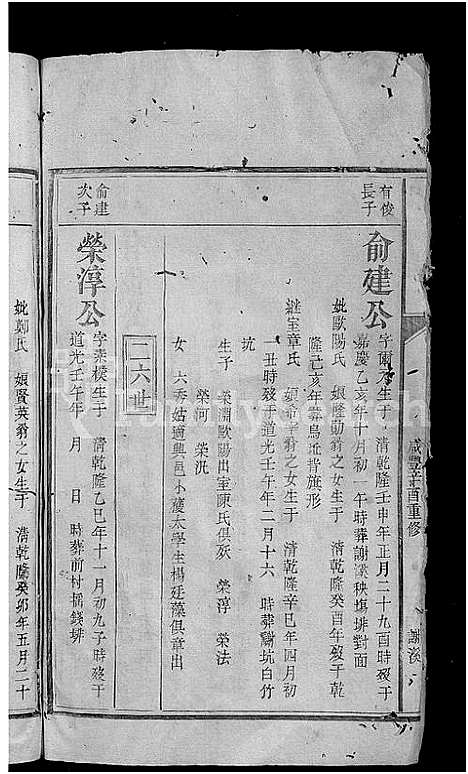 咸豐辛酉重修
謝溪
有俊
長子
俞建公
字爾乃生于 清乾隆壬申年正月二十九酉時歿于
嘉慶乙亥年十月初一午時葬謝溪秧塢排對面
妣歐陽氏 娘隆勛翁之女生于 清乾隆癸酉年歿于乾
隆己亥年葬烏坵背旗形
継室章氏 娘 翁之女生于 清乾隆辛巳年四月初
一丑時歿于道光壬午年二月十六 時葬 坑白竹
坑
生子 榮潤歐陽出室陳氏俱歿 榮淳 榮法
榮河 榮洸
女 六秀姑適興邑小 太學生楊廷藻俱章出
二六世
俞建
次子
榮淳公
字素樸生于 清乾隆乙巳年十一月初九子時歿于
道光壬午年 月 日 時葬前村搖錢排
妣鄭氏 娘賢英翁之女生于 清乾隆癸卯年五月二十